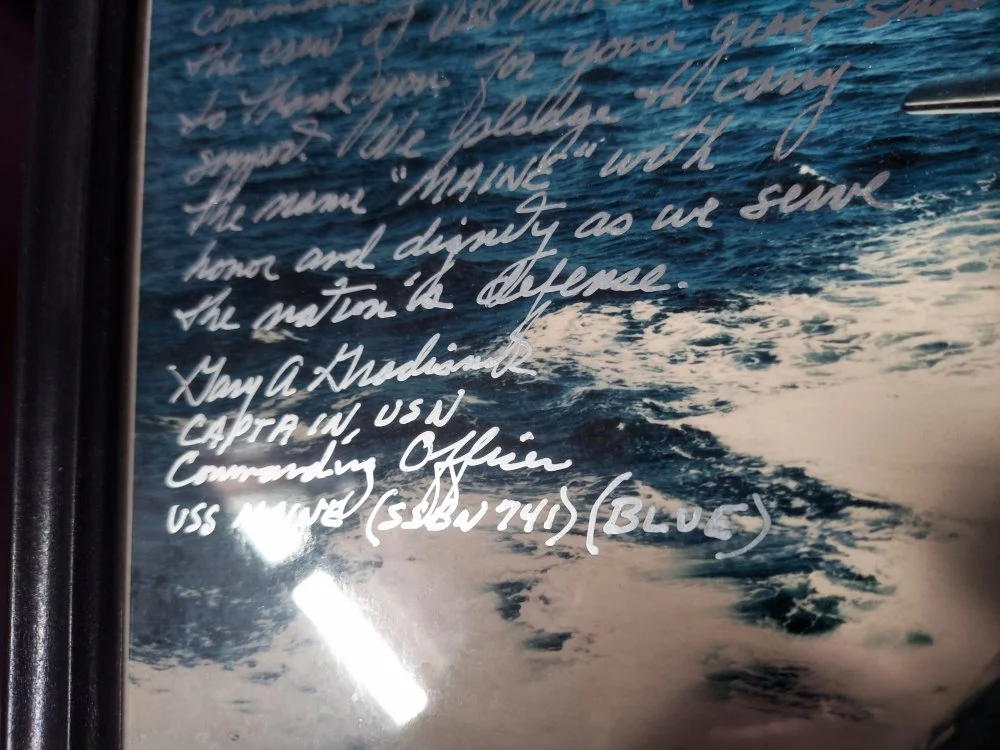 the crew of USS
to thank you for your great
support. We pledge to carry
the name "MAINE" with
honor and dignity as we serve
the nation's defense.
Gary A Gradisnik
CAPTAIN, USN
Commanding Officer
USS MAINE (SSBN 741) (BLUE)